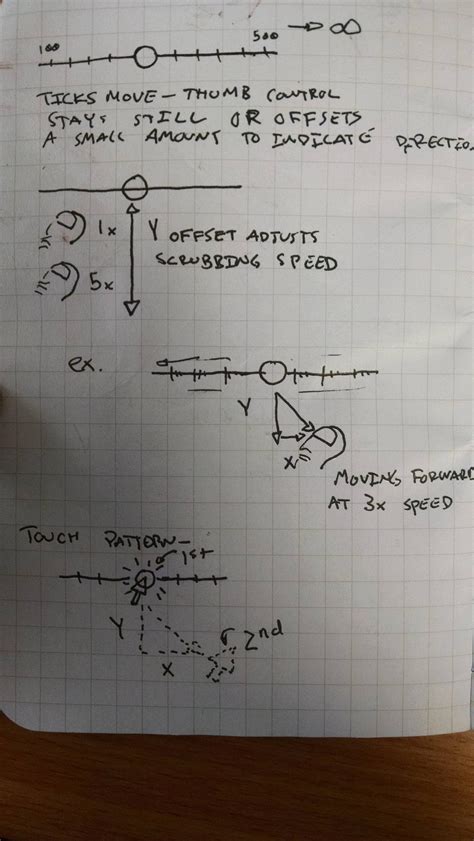 100 500 → ∞
TICKS MOVE - THUMB CONTROL
STAYS STILL OR OFFSETS
A SMALL AMOUNT TO INDICATE DIRECTIO
1x Y OFFSET ADJUSTS
SCRUBBING SPEED
5x
ex.
Y
X
MOVING FORWARD
AT 3x SPEED
TOUCH PATTERN-
1st
Y 2nd
X